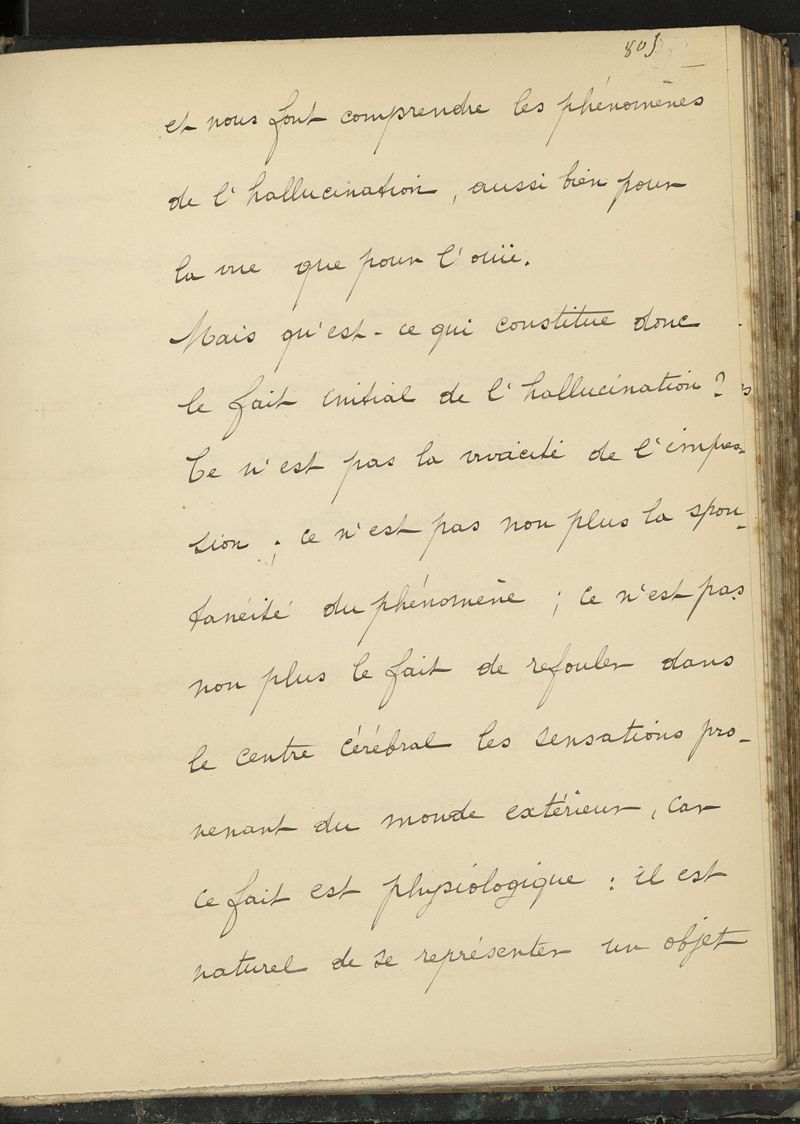 803
et nous font comprendre les phénomènes
de l'hallucination, aussi bien pour
la vue que pour l'ouïe.
Mais qu'est-ce qui constitue donc
le fait initial de l'hallucination ?
Ce n'est pas la vivacité de l'impres-
sion ; ce n'est pas non plus la spon-
tanéité du phénomène ; ce n'est pas
non plus le fait de refouler dans
le centre cérébral les sensations pro-
venant du monde extérieur, car
ce fait est physiologique : il est
naturel de se représenter un objet